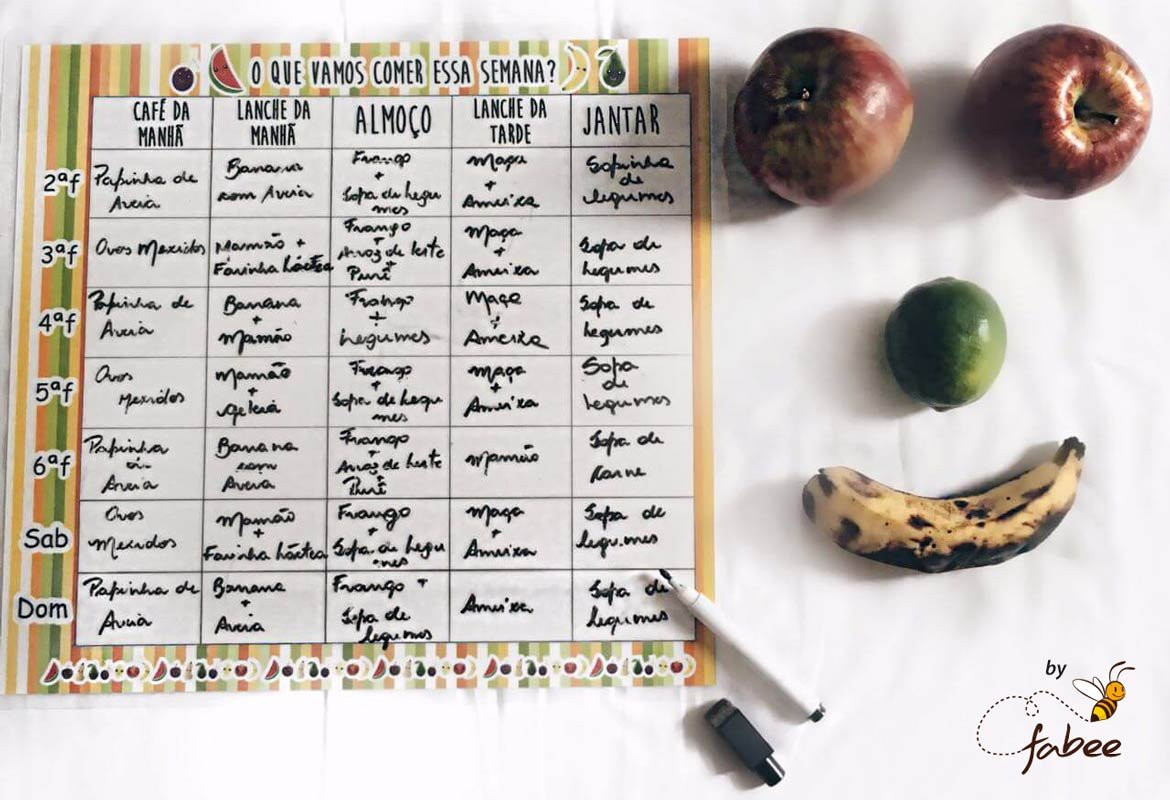 O QUE VAMOS COMER ESSA SEMANA?
CAFÉ DA MANHÃ
LANCHE DA MANHÃ
ALMOÇO
LANCHE DA TARDE
JANTAR
2ªf
Papinha de
Aveia
Banana
com Aveia
Frango
+
Sopa de legu
mes
Maça
+
Ameixa
Sopinha
de
legumes
3ªf
Ovos Mexidos
Mamão +
Farinha láctea
Frango
+
Arroz de leite
+
Purê
Maça
+
Ameixa
Sopa de
legumes
4ªf
Papinha de
Aveia
Banana
+
Mamão
Frango
+
Legumes
Maça
+
Ameixa
Sopa de
legumes
5ªf
Ovos
Mexidos
Mamão
+
Geleia
Frango
+
Sopa de legu
mes
Maça
+
Ameixa
Sopa
de
legumes
6ªf
Papinha
de
Aveia
Banana
com
Aveia
Frango
+
Arroz de leite
+
Purê
Mamão
Sopa de
Carne
Sab
Ovos
Mexidos
Mamão
+
Farinha láctea
Frango
+
Sopa de legu
mes
Maça
+
Ameixa
Sopa de
legumes
Dom
Papinha de
Aveia
Banana
+
Aveia
Frango +
Sopa de
legumes
Ameixa
Sopa de
legumes
by
fabee